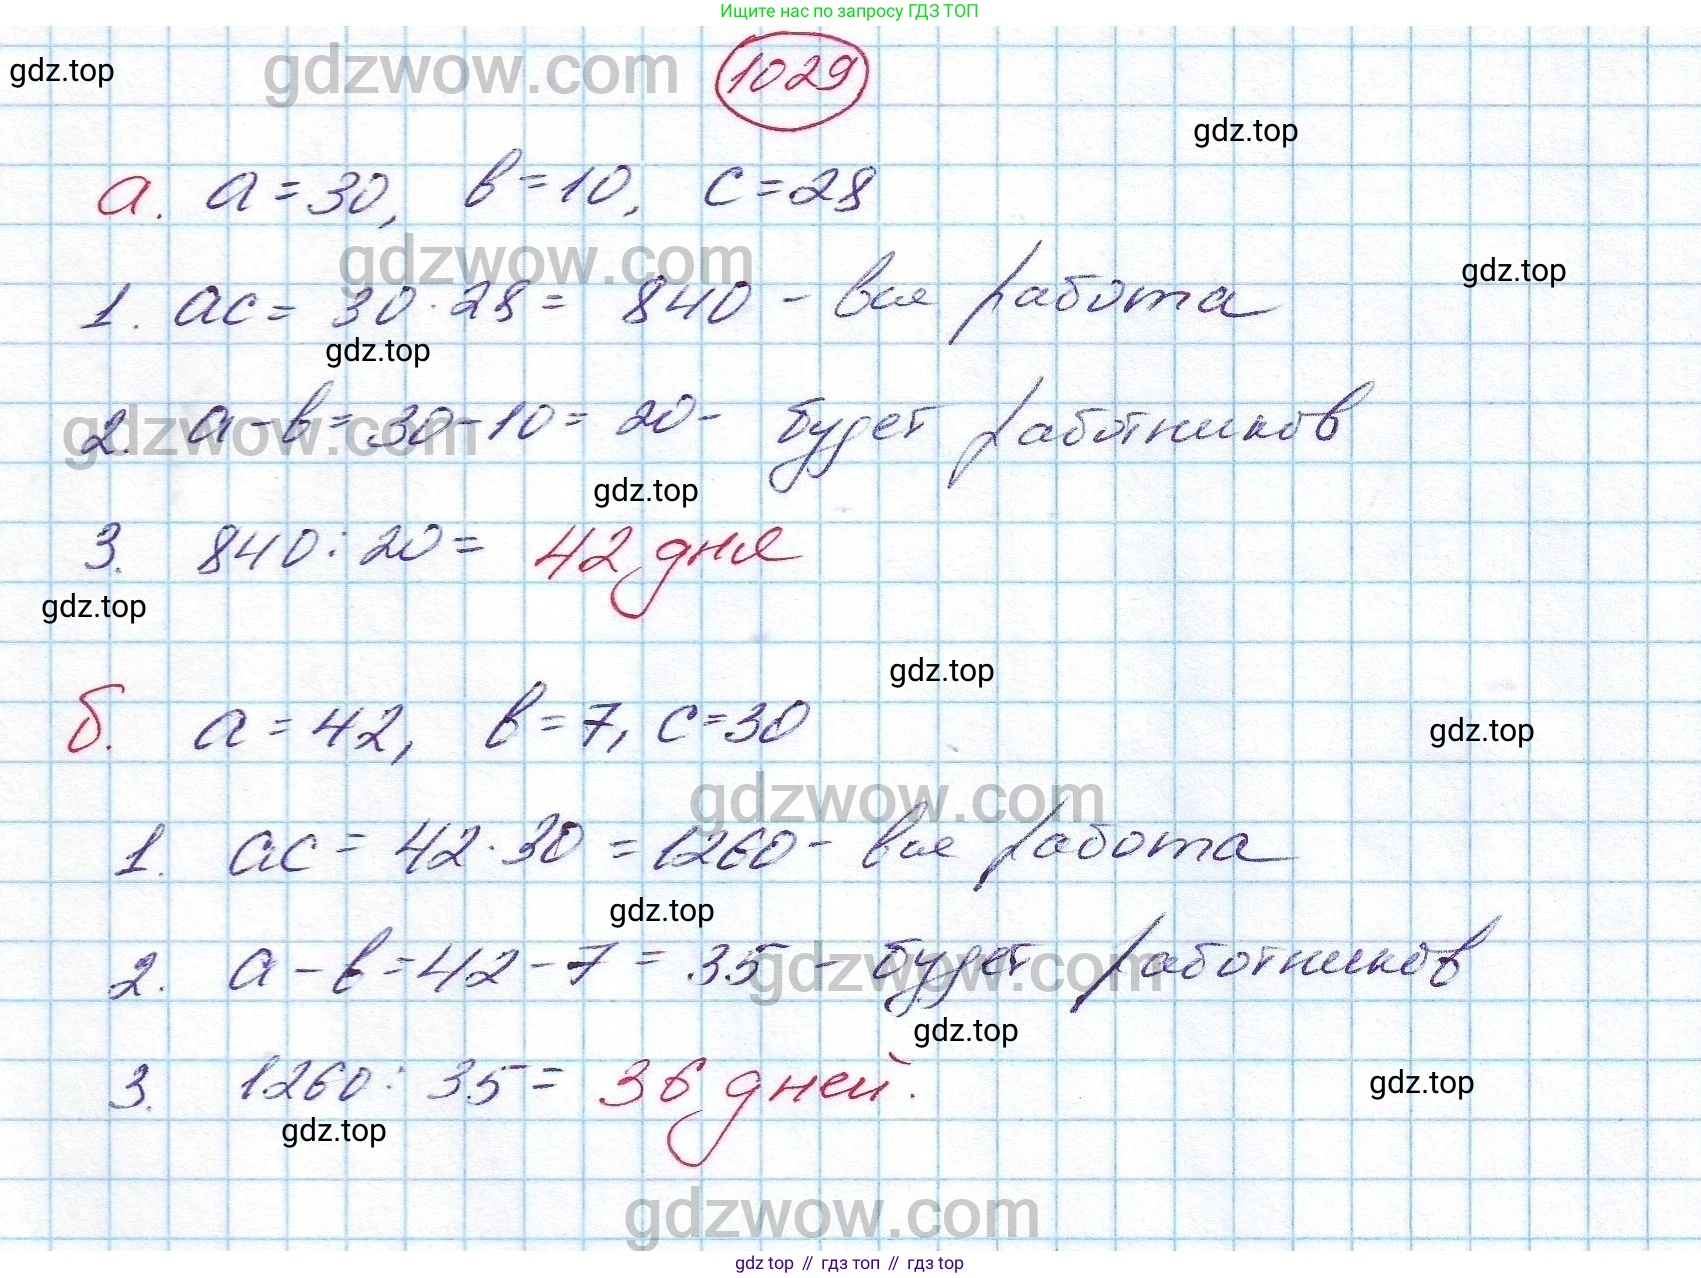 Ищите нас по запросу ГДЗ ТОП
gdzwow.com
1029
gdz.top
gdz.top
а. a = 30, в = 10, c = 28
gdzwow.com
gdz.top
1. ac = 30 · 28 = 840 - вся работа
gdz.top
gdzwow.com
2. a - в = 30 - 10 = 20 - будет работников
gdz.top
3. 840 : 20 = 42 дня
gdz.top
gdz.top
б. a = 42, в = 7, c = 30
gdz.top
gdzwow.com
1. ac = 42 · 30 = 1260 - вся работа
gdz.top
2. a - в = 42 - 7 = 35 - будет работников
gdzwow.com
gdz.top
3. 1260 : 35 = 36 дней.
gdz.top
gdz.top
gdzwow.com
gdz top // гдз топ // gdz top // гдз top